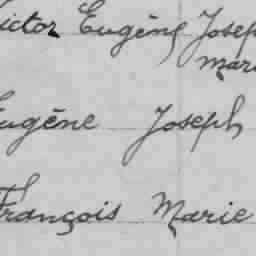 ictor Eugène Josep
mari
ugène Joseph
François Marie